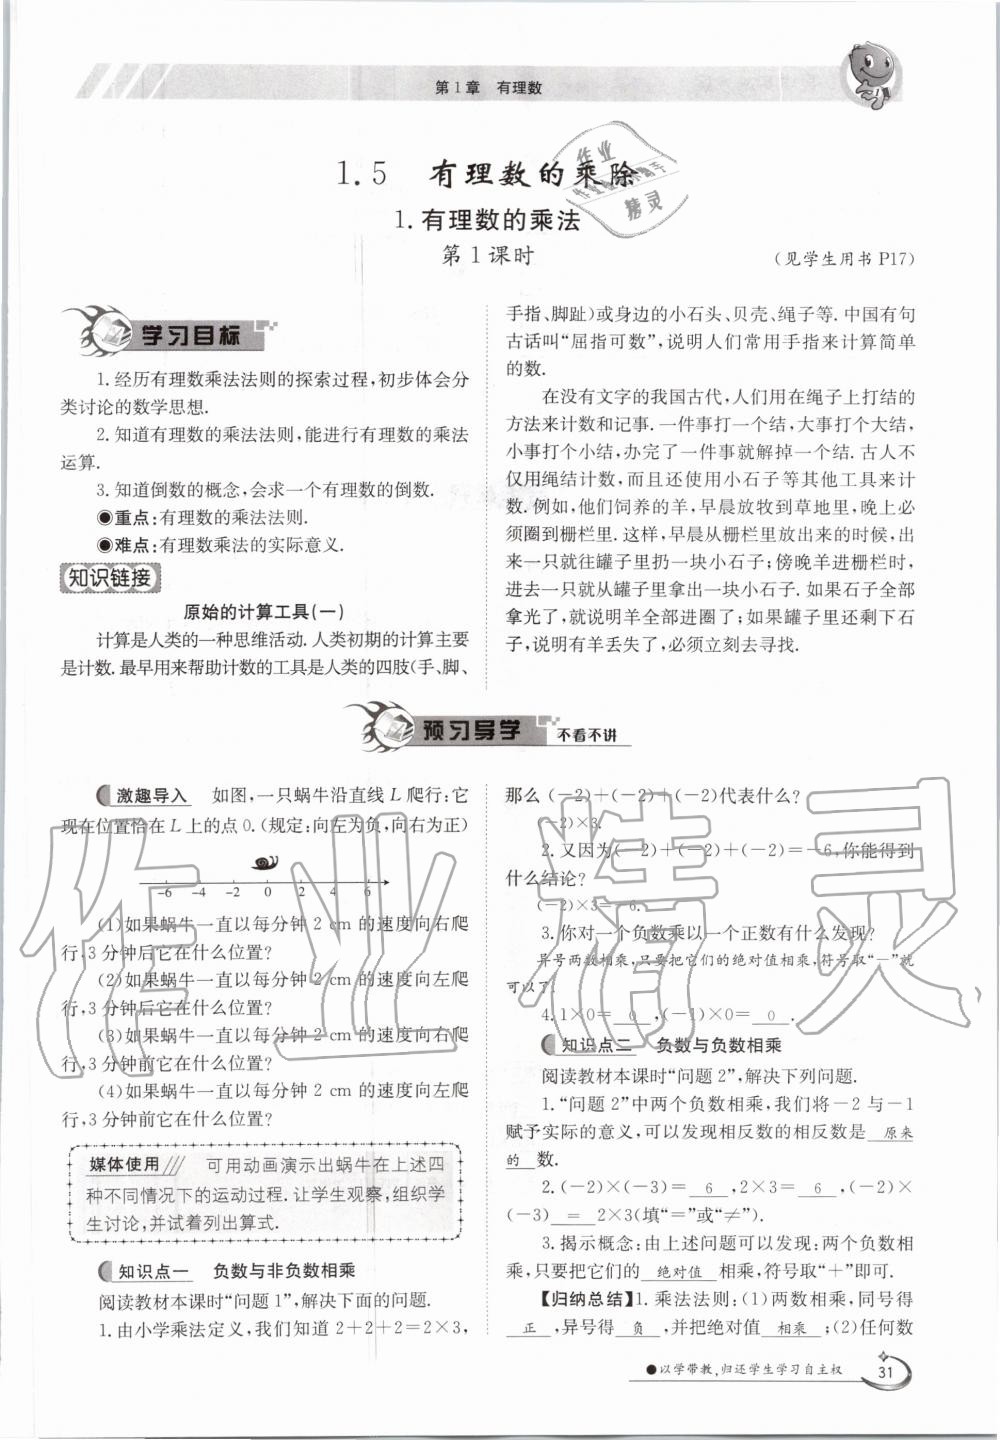 第1章　有理数
1.5　有理数的乘除
1.有理数的乘法
第1课时
(见学生用书 P17)
学习目标
1.经历有理数乘法法则的探索过程,初步体会分
类讨论的数学思想.
2.知道有理数的乘法法则,能进行有理数的乘法
运算.
3.知道倒数的概念,会求一个有理数的倒数.
●重点:有理数的乘法法则.
●难点:有理数乘法的实际意义.
知识链接
原始的计算工具(一)
计算是人类的一种思维活动.人类初期的计算主要
是计数.最早用来帮助计数的工具是人类的四肢(手、脚、
手指、脚趾)或身边的小石头、贝壳、绳子等.中国有句
古话叫“屈指可数”,说明人们常用手指来计算简单
的数.
在没有文字的我国古代,人们用在绳子上打结的
方法来计数和记事.一件事打一个结,大事打个大结,
小事打个小结,办完了一件事就解掉一个结.古人不
仅用绳结计数,而且还使用小石子等其他工具来计
数.例如,他们饲养的羊,早晨放牧到草地里,晚上必
须圈到栅栏里.这样,早晨从栅栏里放出来的时候,出
来一只就往罐子里扔一块小石子;傍晚羊进栅栏时,
进去一只就从罐子里拿出一块小石子.如果石子全部
拿光了,就说明羊全部进圈了;如果罐子里还剩下石
子,说明有羊丢失了,必须立刻去寻找.
预习导学　不看不讲
激趣导入　如图,一只蜗牛沿直线 L 爬行:它
现在位置恰在 L 上的点 0.(规定:向左为负,向右为正)
-6 -4 -2 0 2 4 6
(1)如果蜗牛一直以每分钟 2 cm 的速度向右爬
行,3分钟后它在什么位置?
(2)如果蜗牛一直以每分钟 2 cm 的速度向左爬
行,3分钟后它在什么位置?
(3)如果蜗牛一直以每分钟 2 cm 的速度向右爬
行,3分钟前它在什么位置?
(4)如果蜗牛一直以每分钟 2 cm 的速度向左爬
行,3分钟前它在什么位置?
媒体使用　可用动画演示出蜗牛在上述四
种不同情况下的运动过程.让学生观察,组织学
生讨论,并试着列出算式.
知识点一　负数与非负数相乘
阅读教材本课时“问题1”,解决下面的问题.
1.由小学乘法定义,我们知道 2+2+2=2×3,
那么(-2)+(-2)+(-2)代表什么?
(-2)×3.
2.又因为(-2)+(-2)+(-2)=-6,你能得到
什么结论?
(-2)×3=-6.
3.你对一个负数乘以一个正数有什么发现?
异号两数相乘,只要把它们的绝对值相乘,符号取“-”就
可以了.
4.1×0= 0 ,(-1)×0= 0 .
知识点二　负数与负数相乘
阅读教材本课时“问题2”,解决下列问题.
1.“问题2”中两个负数相乘,我们将-2与-1
赋予实际的意义,可以发现相反数的相反数是 原来
的 数.
2.(-2)×(-3)= 6 ,2×3= 6 ,(-2)×
(-3) = 2×3(填“=”或“≠”).
3.揭示概念:由上述问题可以发现:两个负数相
乘,只要把它们的 绝对值 相乘,符号取“+”即可.
【归纳总结】1.乘法法则:(1)两数相乘,同号得
正 ,异号得 负 ,并把绝对值 相乘 ;(2)任何数
●以学带教,归还学生学习自主权
31
作业
精灵
作业精灵